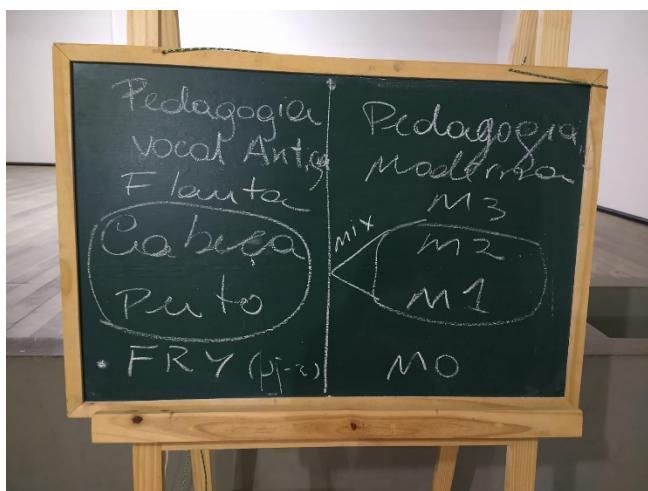 Pedagogia
vocal Antiga
Flauta
Cabeça
Peito
• FRY
Pedagogia
Moderna
M3
mix
M2
M1
M0